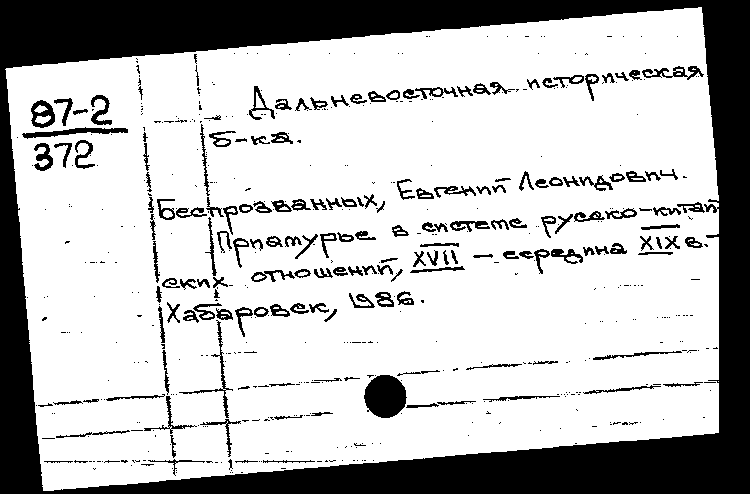 Дальневосточная историческая
87-2
372
б-ка.
Беспрозванных, Евгений Леонидович.
Приамурье в системе русско-китай-
ских отношений, XVII – середина XIX в. –
Хабаровск, 1986.